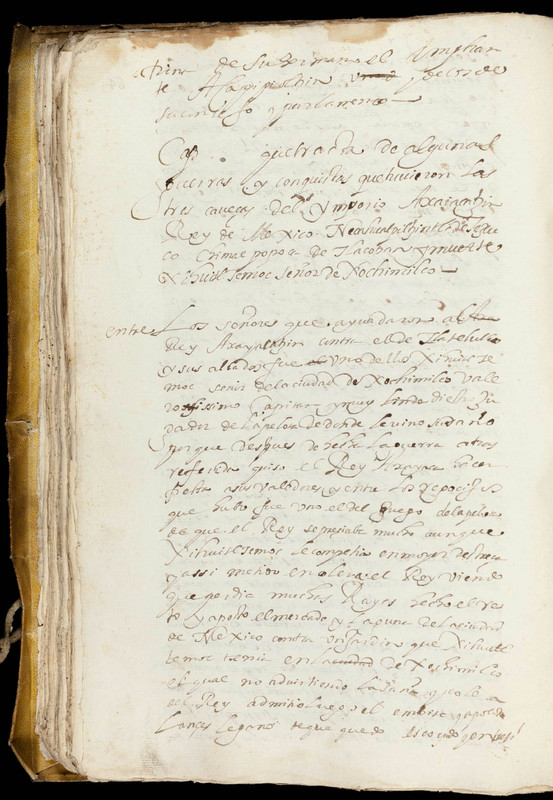 de su hermano el
te Azapipiochin y de
suceso y parlamento
Cap. que trata de algunas
guerras y conquistas que hicieron las
tres cavezas del ymperio Axaiacatzin
Rey de Mexico Nezahualpiltzintli de Tezcu
co Chimalpopoca de Tlacopan y muerte
Xihuitlemoc señor de Xochimilco
entre Los señores que ayudaron al
Rey Axayacatzin contra el de Tlatelulco
y sus aliados fue uno dellos Xihuitle
moc señor de la ciudad de Xochimilco vale
rosissimo capitan y muy lindo
gador de la pelota de donde le vino su daño
porque despues de hecha la guerra atras
referida quiso el Rey Axayaca hacer
fiesta a sus valedores y entre los regocijos
que hubo fue uno el del juego de la pelota
es que el Rey se preciaba mucho aunque
Xihuitlemoc le competia en mayor destreza
y assi metido en el Rey viendo
que perdia muchas Rayas hecho el res
to y aposto el mercado y laguna de la ciudad
de Mexico contra un jardin que Xihuitl
temoc tenia en la ciudad de Xochimilco
el qual no advirtiendo
el Rey admitio luego el embite y a pocos
Lances le gano